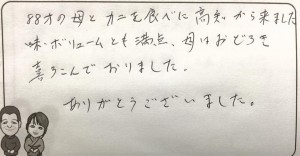 88才の母とカニを食べに高知から来ました
味・ボリュームとも満点、母はおどろき
喜ろこんでおりました。
ありがとうございました。